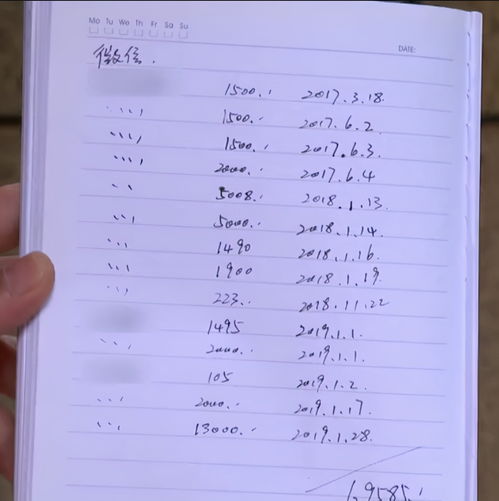 Mo Tu We Th Fr Sa Su
DATE:
微信.
1500.. 2017.3.18.
、、、, 1500.. 2017.6.2.
、、、, 1500.. 2017.6.3.
、、、, 2000.. 2017.6.4
、、 5008.. 2018.1.13.
、、、 5000.. 2018.1.14.
、、、 1490 2018.1.16.
、、、 1900 2018.1.19.
、、、 223.. 2018.11.22
1495 2019.1.1.
、、、 2000.. 2019.1.1.
105 2019.1.2.
、、、 2000.. 2019.1.17.
、、、 13000.. 2019.1.28.